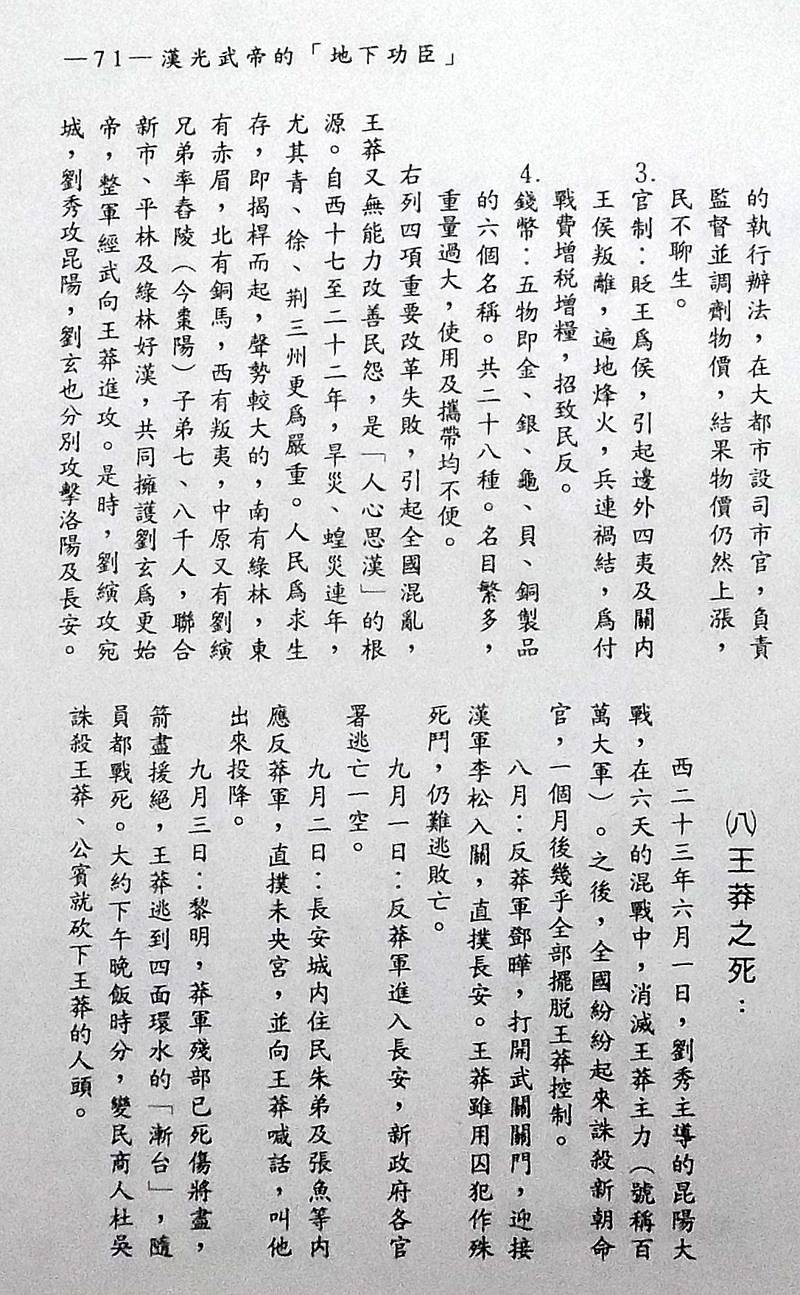 —71—漢光武帝的「地下功臣」
的執行辦法，在大都市設司市官，負責
監督並調劑物價，結果物價仍然上漲，
民不聊生。
3.官制：貶王爲侯，引起邊外四夷及關內
王侯叛離，遍地烽火，兵連禍結，爲付
戰費增税增糧，招致民反。
4.錢幣：五物即金、銀、龜、貝、銅製品
的六個名稱。共二十八種。名目繁多，
重量過大，使用及攜帶均不便。
右列四項重要改革失敗，引起全國混亂，
王莽又無能力改善民怨，是「人心思漢」的根
源。自西十七至二十二年，旱災、蝗災連年，
尤其青、徐、荆三州更爲嚴重。人民爲求生
存，即揭桿而起，聲勢較大的，南有綠林，東
有赤眉，北有銅馬，西有叛夷，中原又有劉縯
兄弟率舂陵（今棗陽）子弟七、八千人，聯合
新市、平林及綠林好漢，共同擁護劉玄爲更始
帝，整軍經武向王莽進攻。是時，劉縯攻宛
城，劉秀攻昆陽，劉玄也分別攻擊洛陽及長安。
㈧王莽之死：
西二十三年六月一日，劉秀主導的昆陽大
戰，在六天的混戰中，消滅王莽主力（號稱百
萬大軍）。之後，全國紛紛起來誅殺新朝命
官，一個月後幾乎全部擺脱王莽控制。
八月：反莽軍鄧曄，打開武關關門，迎接
漢軍李松入關，直撲長安。王莽雖用囚犯作殊
死鬥，仍難逃敗亡。
九月一日：反莽軍進入長安，新政府各官
署逃亡一空。
九月二日：長安城内住民朱弟及張魚等内
應反莽軍，直撲未央宮，並向王莽喊話，叫他
出來投降。
九月三日：黎明，莽軍殘部已死傷將盡，
箭盡援絕，王莽逃到四面環水的「漸台」，隨
員都戰死。大約下午晚飯時分，變民商人杜吳
誅殺王莽、公賓就砍下王莽的人頭。